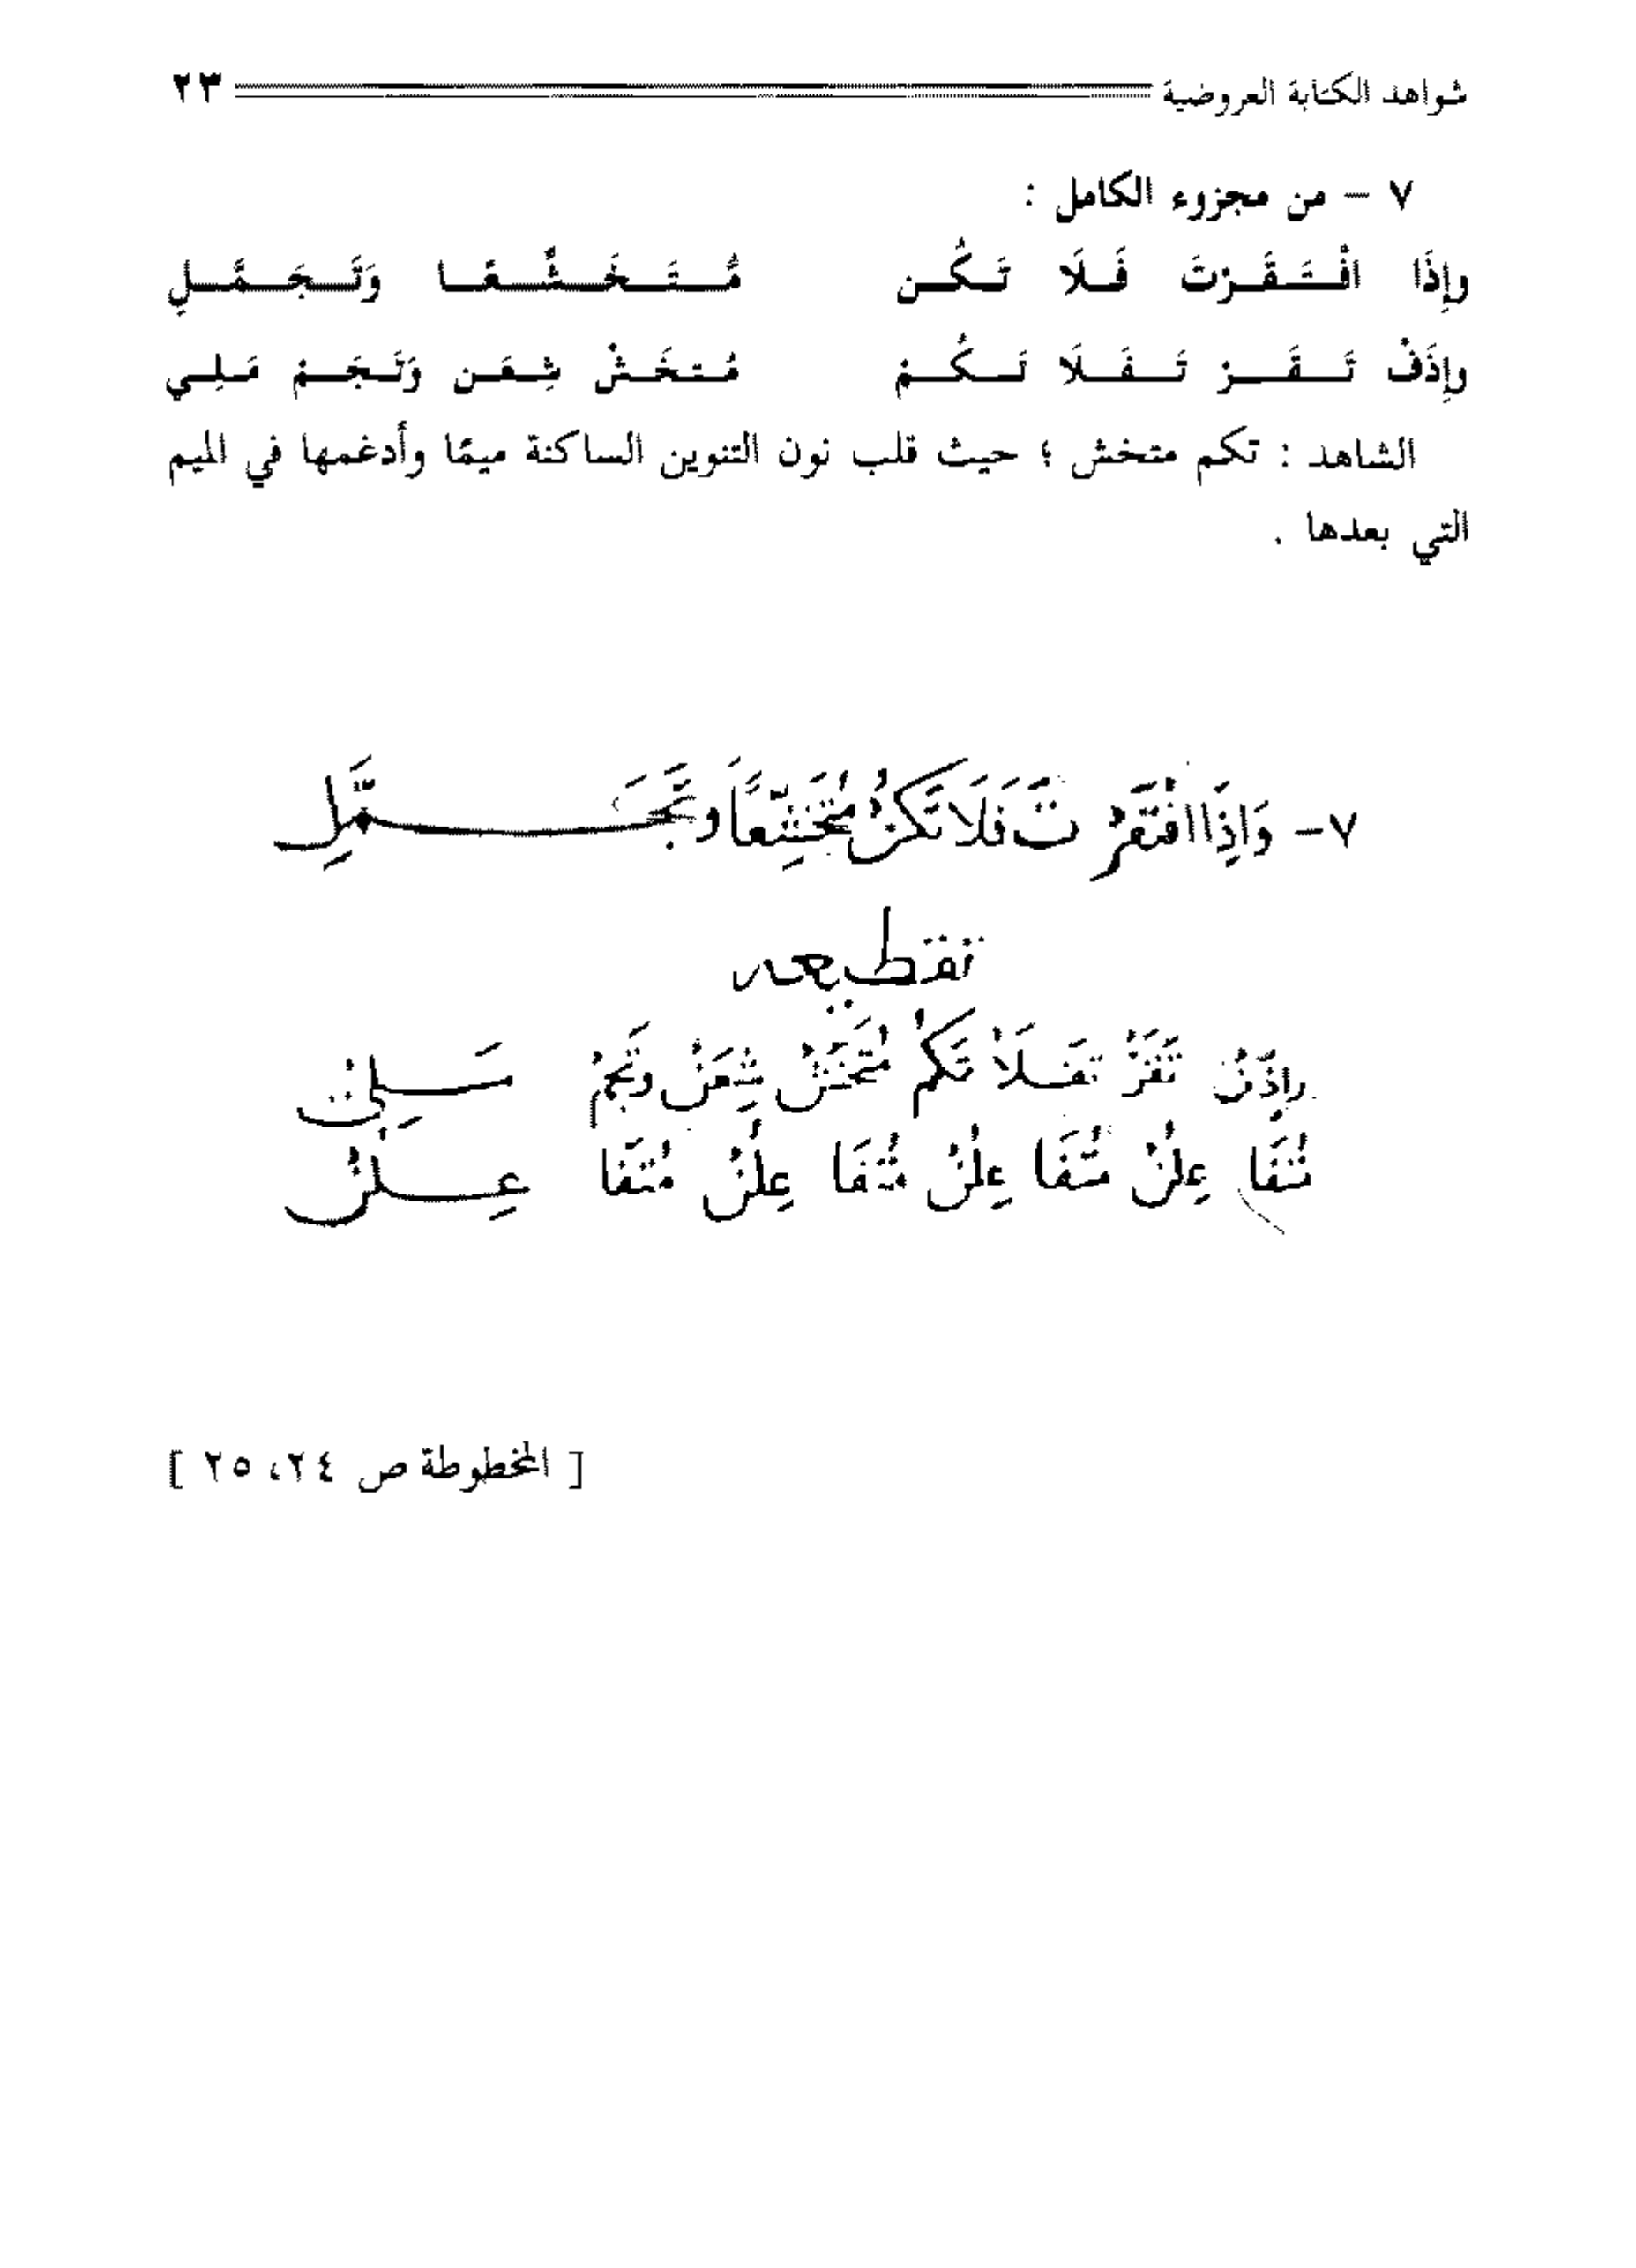 شواهد الكتابة العروضية ٢٣
٧ – من مجزوء الكامل :
وإِذَا افْتَقَرْتَ فَلَا تَكُن مُتَخَشِّعًا وَتَجَمَّلِ
وإِذَفْ تَقَرْ تَفَلَا تَكُمْ مُتخَشْ شِعَن وَتَجَمْ مَلِي
الشاهد : تكم متخش ؛ حيث قلب نون التنوين الساكنة ميمًا وأدغمها في الميم
التي بعدها .
٧- وَاِذَا افْتَقَرْتَ فَلَا تَكُنْ مُتَخَشِّعاً وَتَجَمَّلِ
تقطيعه
وإِذَفْ تَقَرْ تَفَلَا تَكُمْ مُتَخَشْ شِعَنْ وَتَجَمْ مَلِيْ
مُتَفَا عِلُنْ مُتَفَا عِلُنْ مُتَفَا عِلُنْ مُتَفَا عِلُنْ
[ المخطوطة ص ٢٤، ٢٥ ]